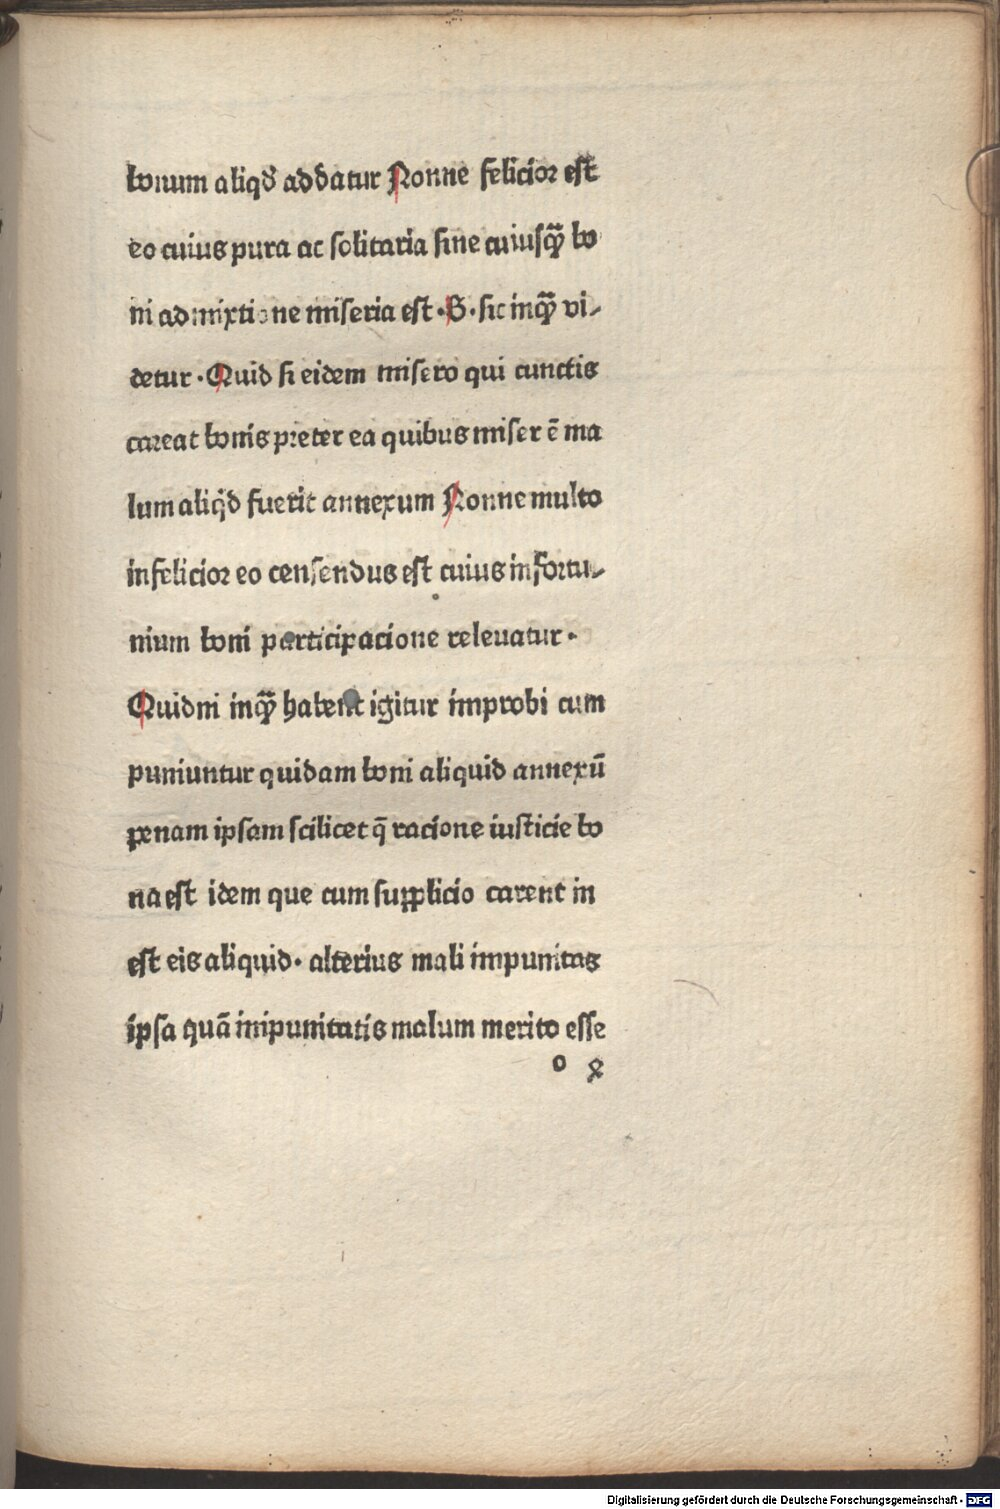 bonum aliqd̕ addatur Nonne felicior est
eo cuius pura ac solitaria sine cuiusq̃ bo
ni admixtione miseria est·B·sic inq̃ vi-
detur·Quid si eidem misero qui cunctis
careat bonis preter ea quibus miser ē ma
lum aliqd̕ fuerit annexum Nonne multo
infelicior eo censendus est cuius infortu-
nium boni participacione releuatur·
Quidni inq̃ habent igitur improbi cum
puniuntur quidam boni aliquid annexū
penam ipsam scilicet q̄ racione iusticie bo
na est idem que cum supplicio carent in
est eis aliquid· alterius mali impunitas
ipsa quā inipunitatis malum merito esse
o x
Digitalisierung gefördert durch die Deutsche Forschungsgemeinschaft - DFG